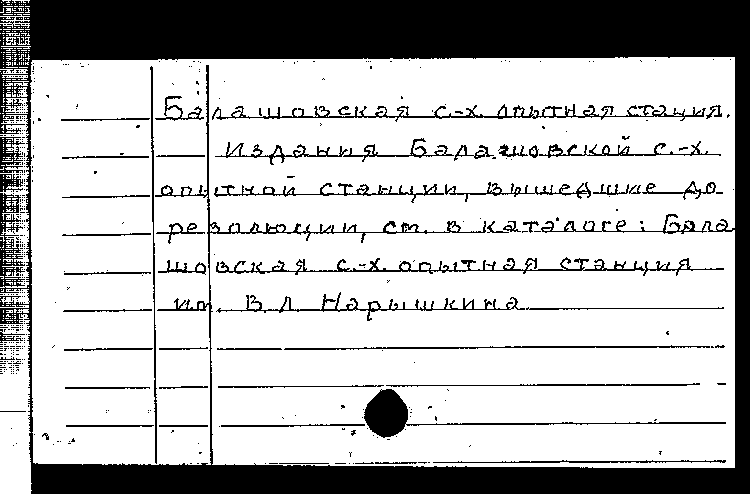 Балашовская с.-х. опытная стация.
Издания Балашовской с.-х.
опытной станции, вышедшие до
резолюции, см. в каталоге: Бала
шовская с.-х. опытная станция
им. В Л Нарышкина